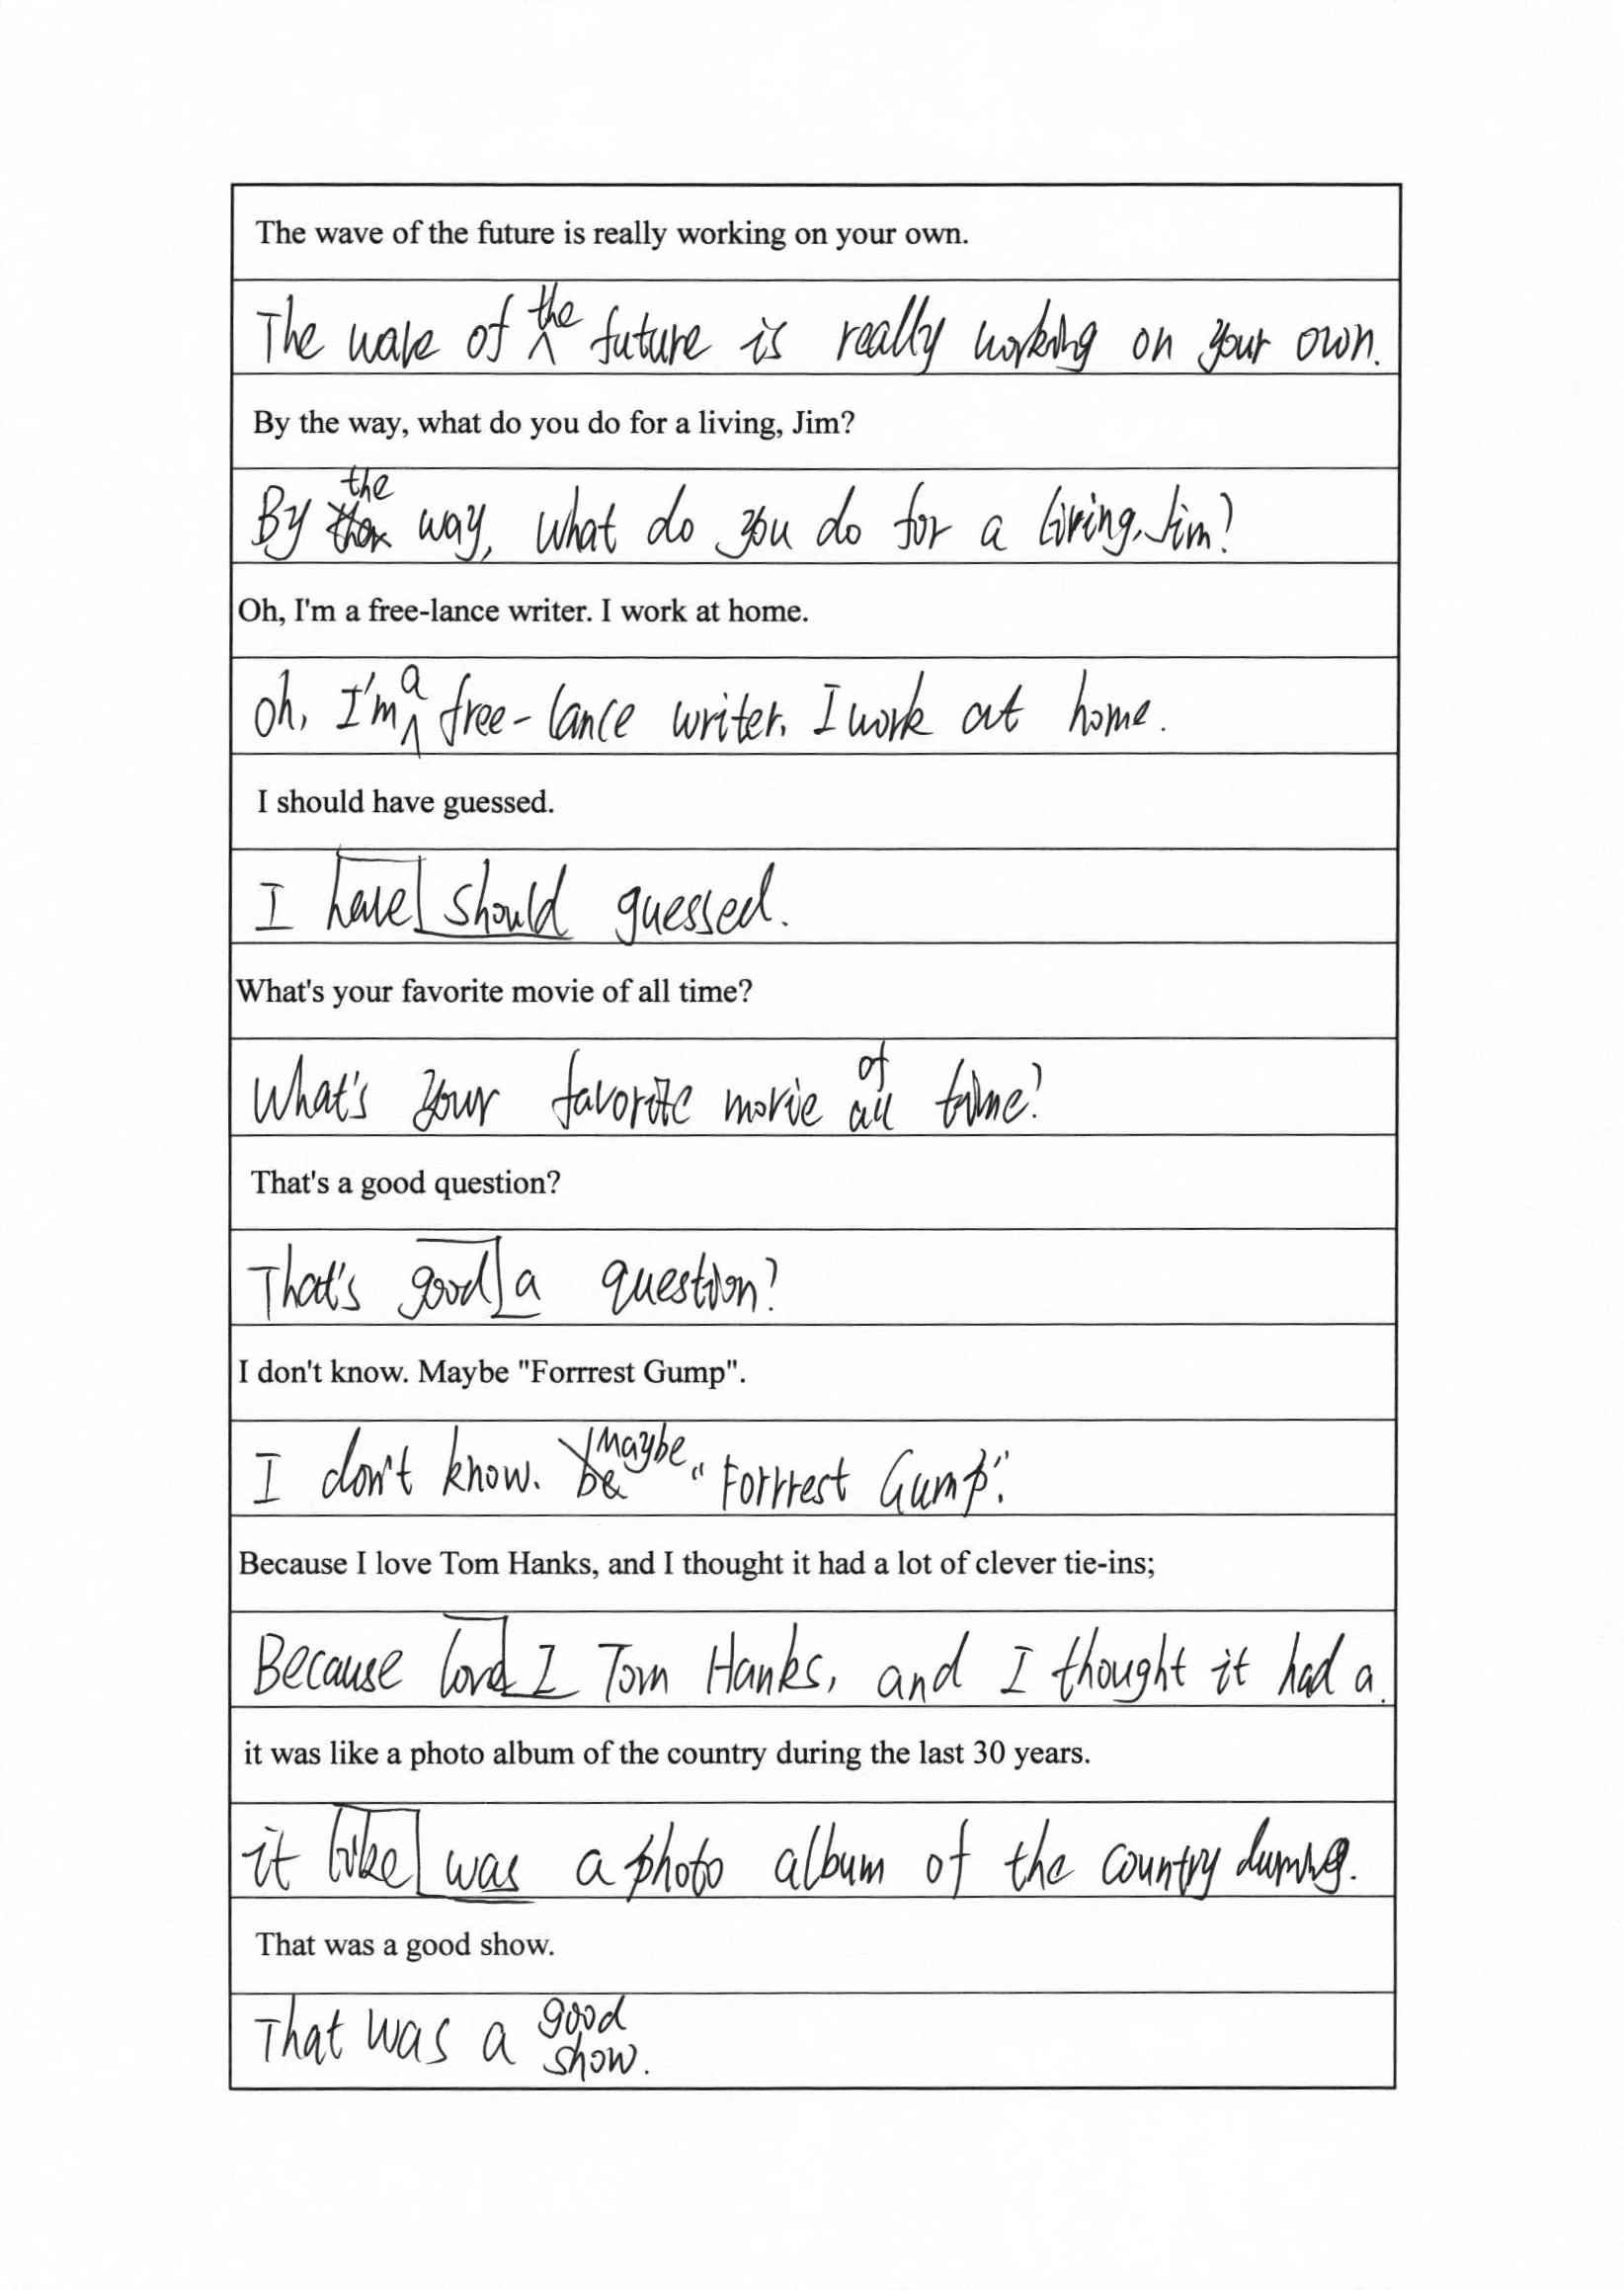 The wave of the future is really working on your own.
The wave of the future is really working on your own.
By the way, what do you do for a living, Jim?
By the way, what do you do for a living, Jim?
Oh, I'm a free-lance writer. I work at home.
oh, I'm a free-lance writer. I work at home.
I should have guessed.
I have should guessed.
What's your favorite movie of all time?
What's your favorite movie of all time?
That's a good question?
That's good a question?
I don't know. Maybe "Forrrest Gump".
I don't know. Maybe "Forrrest Gump".
Because I love Tom Hanks, and I thought it had a lot of clever tie-ins;
Because love I Tom Hanks, and I thought it had a.
it was like a photo album of the country during the last 30 years.
it like was a photo album of the country during.
That was a good show.
That was a good show.